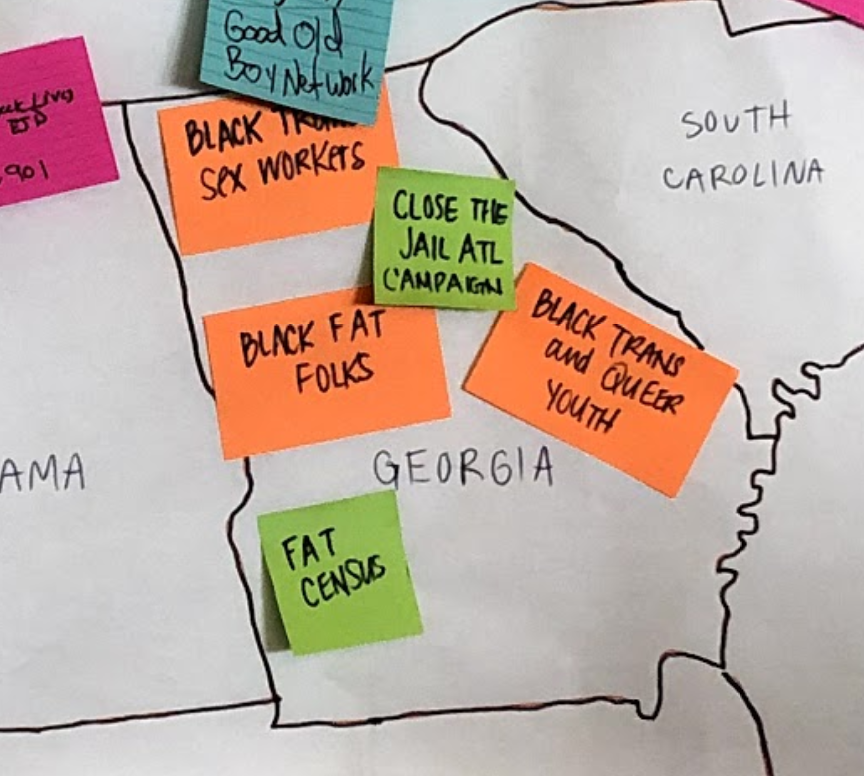 Good Old
Boy Network
EJP
901
BLACK
SEX WORKERS
CLOSE THE
JAIL ATL
CAMPAIGN
BLACK FAT
FOLKS
BLACK TRANS
and QUEER
YOUTH
SOUTH
CAROLINA
AMA
GEORGIA
FAT
CENSUS